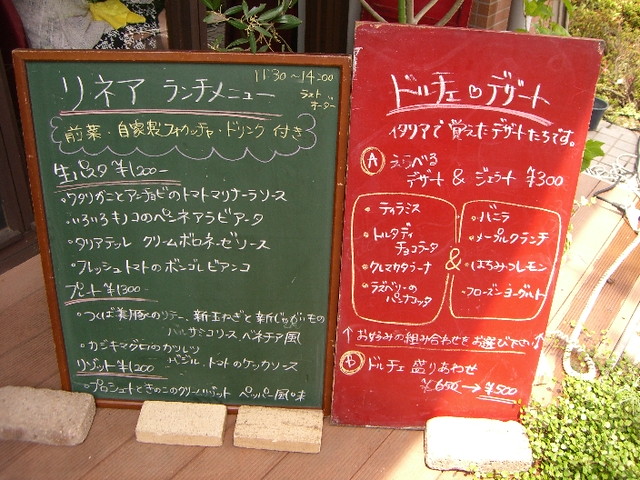 リネア ランチメニュー
11:30〜14:00
ラスト
オーダー
前菜・自家製フォカッチャ・ドリンク付き
生パスタ ¥1200-
・ワタリガニとアンチョビのトマトマリナーラソース
・いろいろキノコのペンネアラビアータ
・タリアテッレ クリームボロネーゼソース
・フレッシュトマトのボンゴレビアンコ
プレート ¥1300-
・つくば美豚のソテー、新玉ねぎと新じゃがいもの
バルサミコソース ベネチア風
・カジキマグロのカツレツ
バジル・トマトのケッカソース
リゾット ¥1200
・プロシュートときのこのクリームリゾット ペッパー風味
ドルチェ デザート
イタリアで覚えたデザートたちです。
A えらべる
デザート & ジェラート ¥300
・ティラミス
・トルタディ
チョコラータ
・クレマカタラーナ
・ラズベリーの
パンナコッタ
&
・バニラ
・メープルクランチ
・はちみつレモン
・フローズンヨーグルト
↑お好みの組み合わせをお選び下さい↑
B ドルチェ 盛りあわせ
¥650 → ¥500